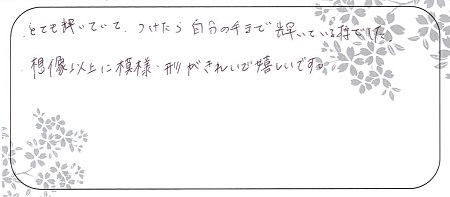 とても輝いていて、つけたら自分の手まで輝いている様でした。
想像以上に模様・形がきれいで嬉しいです。